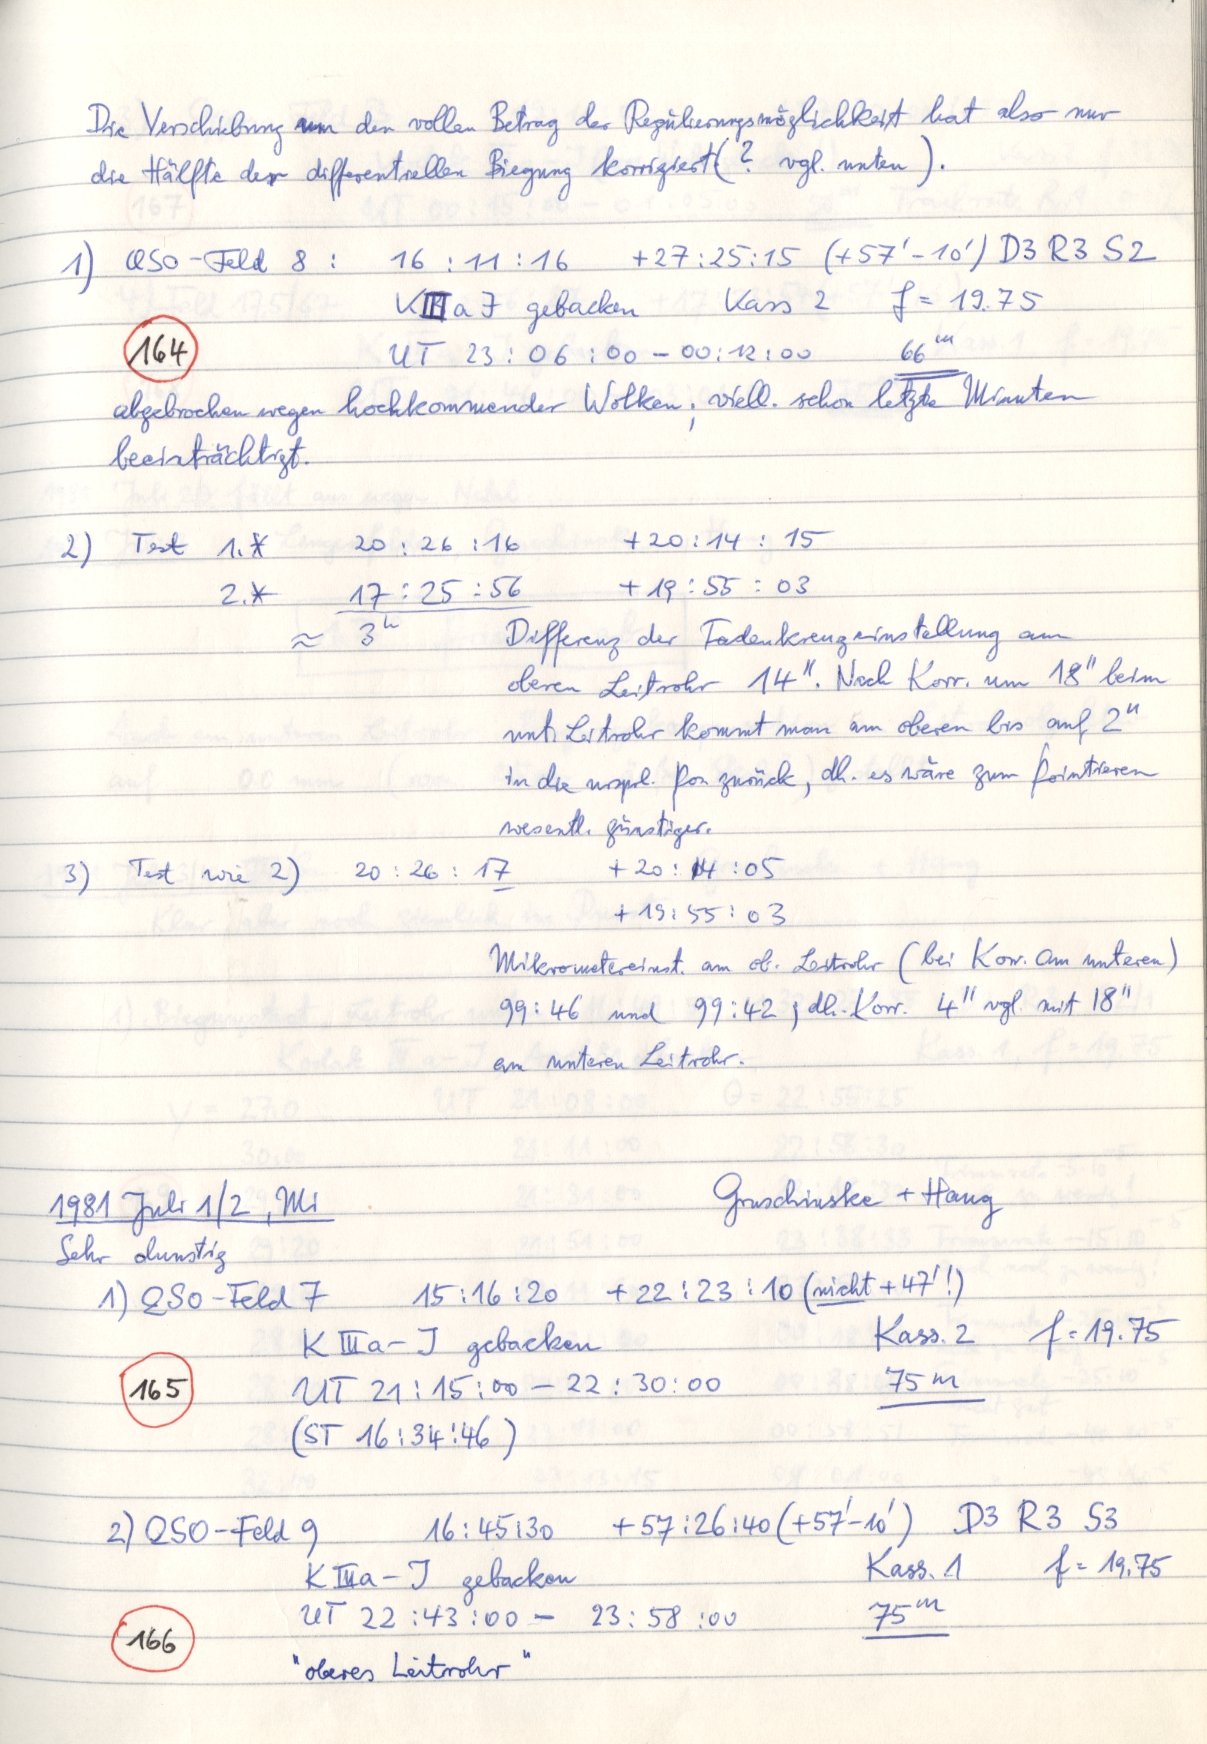 Die Verschiebung um den vollen Betrag der Regulierungsmöglichkeit hat also nur
die Hälfte der differentiellen Biegung korrigiert (? vgl. unten).
1) QSO-Feld 8 : 16 : 11 : 16 +27:25:15 (+57'-10') D3 R3 S2
KIIIaJ gebacken Kass 2 f = 19.75
164 UT 23 : 06 : 00 - 00:12:00 66m
abgebrochen wegen hochkommender Wolken; viell. schon letzte Minuten
beeinträchtigt.
2) Test 1.* 20 : 26 : 16 +20:14 : 15
2.* 17 : 25 : 56 +19 : 55 : 03
≈ 3h Differenz der Fadenkreuzeinstellung am
oberen Leitrohr 14". Nach Korr. um 18" beim
unt. Leitrohr kommt man am oberen bis auf 2"
in die urspl. Pos zurück, dh. es wäre zum Pointieren
wesentl. günstiger.
3) Test wie 2) 20 : 26 : 17 +20 : 14 : 05
+19:55:03
Mikrometereinst. am ob. Leitrohr (bei Korr. am unteren)
99:46 und 99:42 ; dh. Korr. 4" vgl. mit 18"
am unteren Leitrohr.
1981 Juli 1/2, Mi Gruschinske + Haug
Sehr dunstig
1) QSO-Feld 7 15:16:20 +22:23:10 (nicht +47'!)
K IIIa-J gebacken Kass. 2 f = 19.75
165 UT 21:15:00 - 22:30:00 75m
(ST 16:34:46)
2) QSO-Feld 9 16:45:30 +57:26:40 (+57'-10') D3 R3 S3
K IIIa-J gebacken Kass. 1 f = 19.75
166 UT 22:43:00 - 23:58:00 75m
"oberes Leitrohr"